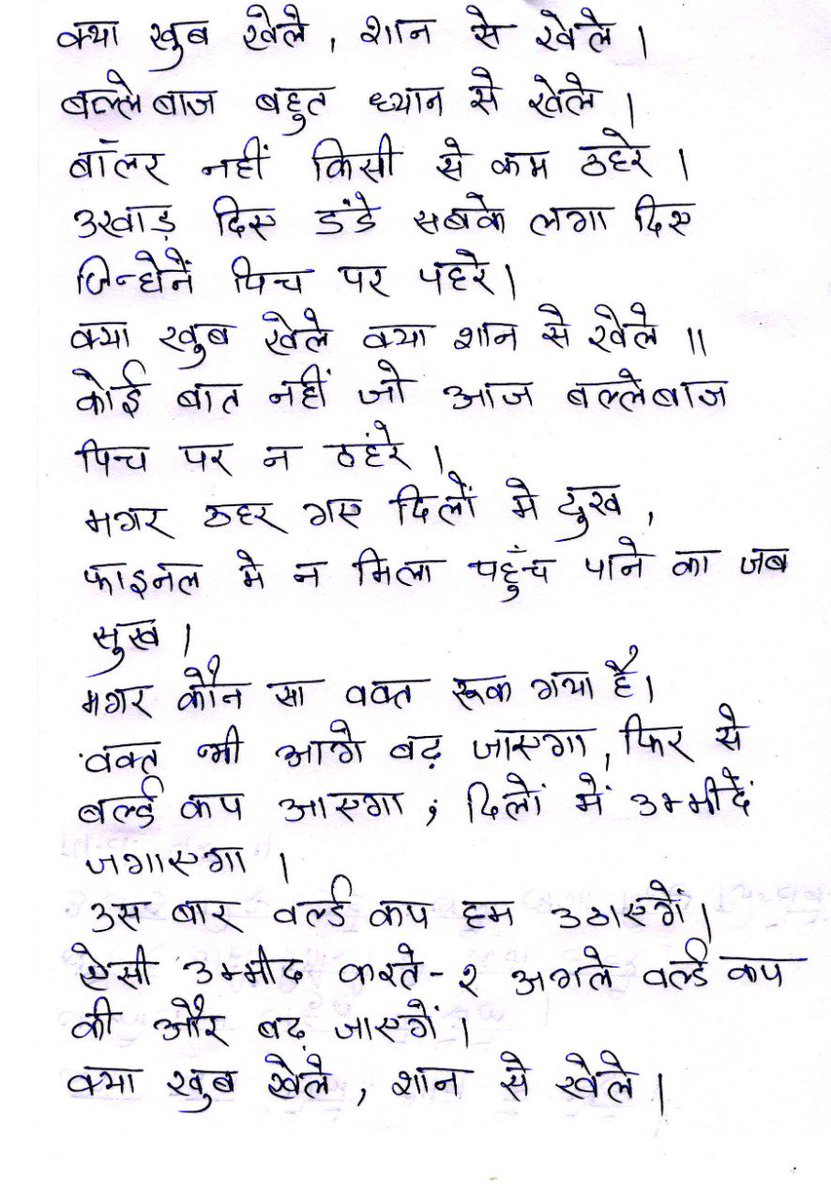 क्या खुब खेले, शान से खेले।
बल्लेबाज बहुत ध्यान से खेले।
बॉलर नहीं किसी से कम ठहरे।
उखाड़ दिए डंडे सबके लगा दिए
जिन्होनें पिच पर पहरे।
क्या खुब खेले क्या शान से खेले॥
कोई बात नहीं जो आज बल्लेबाज
पिच पर न ठहरे।
मगर ठहर गए दिलों मे दुख,
फाइनल मे न मिला पहुँच पाने का जब
सुख।
मगर कौन सा वक्त रूक गया है।
वक्त भी आगे बढ़ जाएगा, फिर से
बर्ल्ड कप आएगा, दिलों में उम्मीदें
जगाएगा।
उस बार वर्ल्ड कप हम उठाएगें।
ऐसी उम्मीद करते-२ अगले वर्ल्ड कप
की और बढ़ जाएगें।
क्या खुब खेले, शान से खेले।